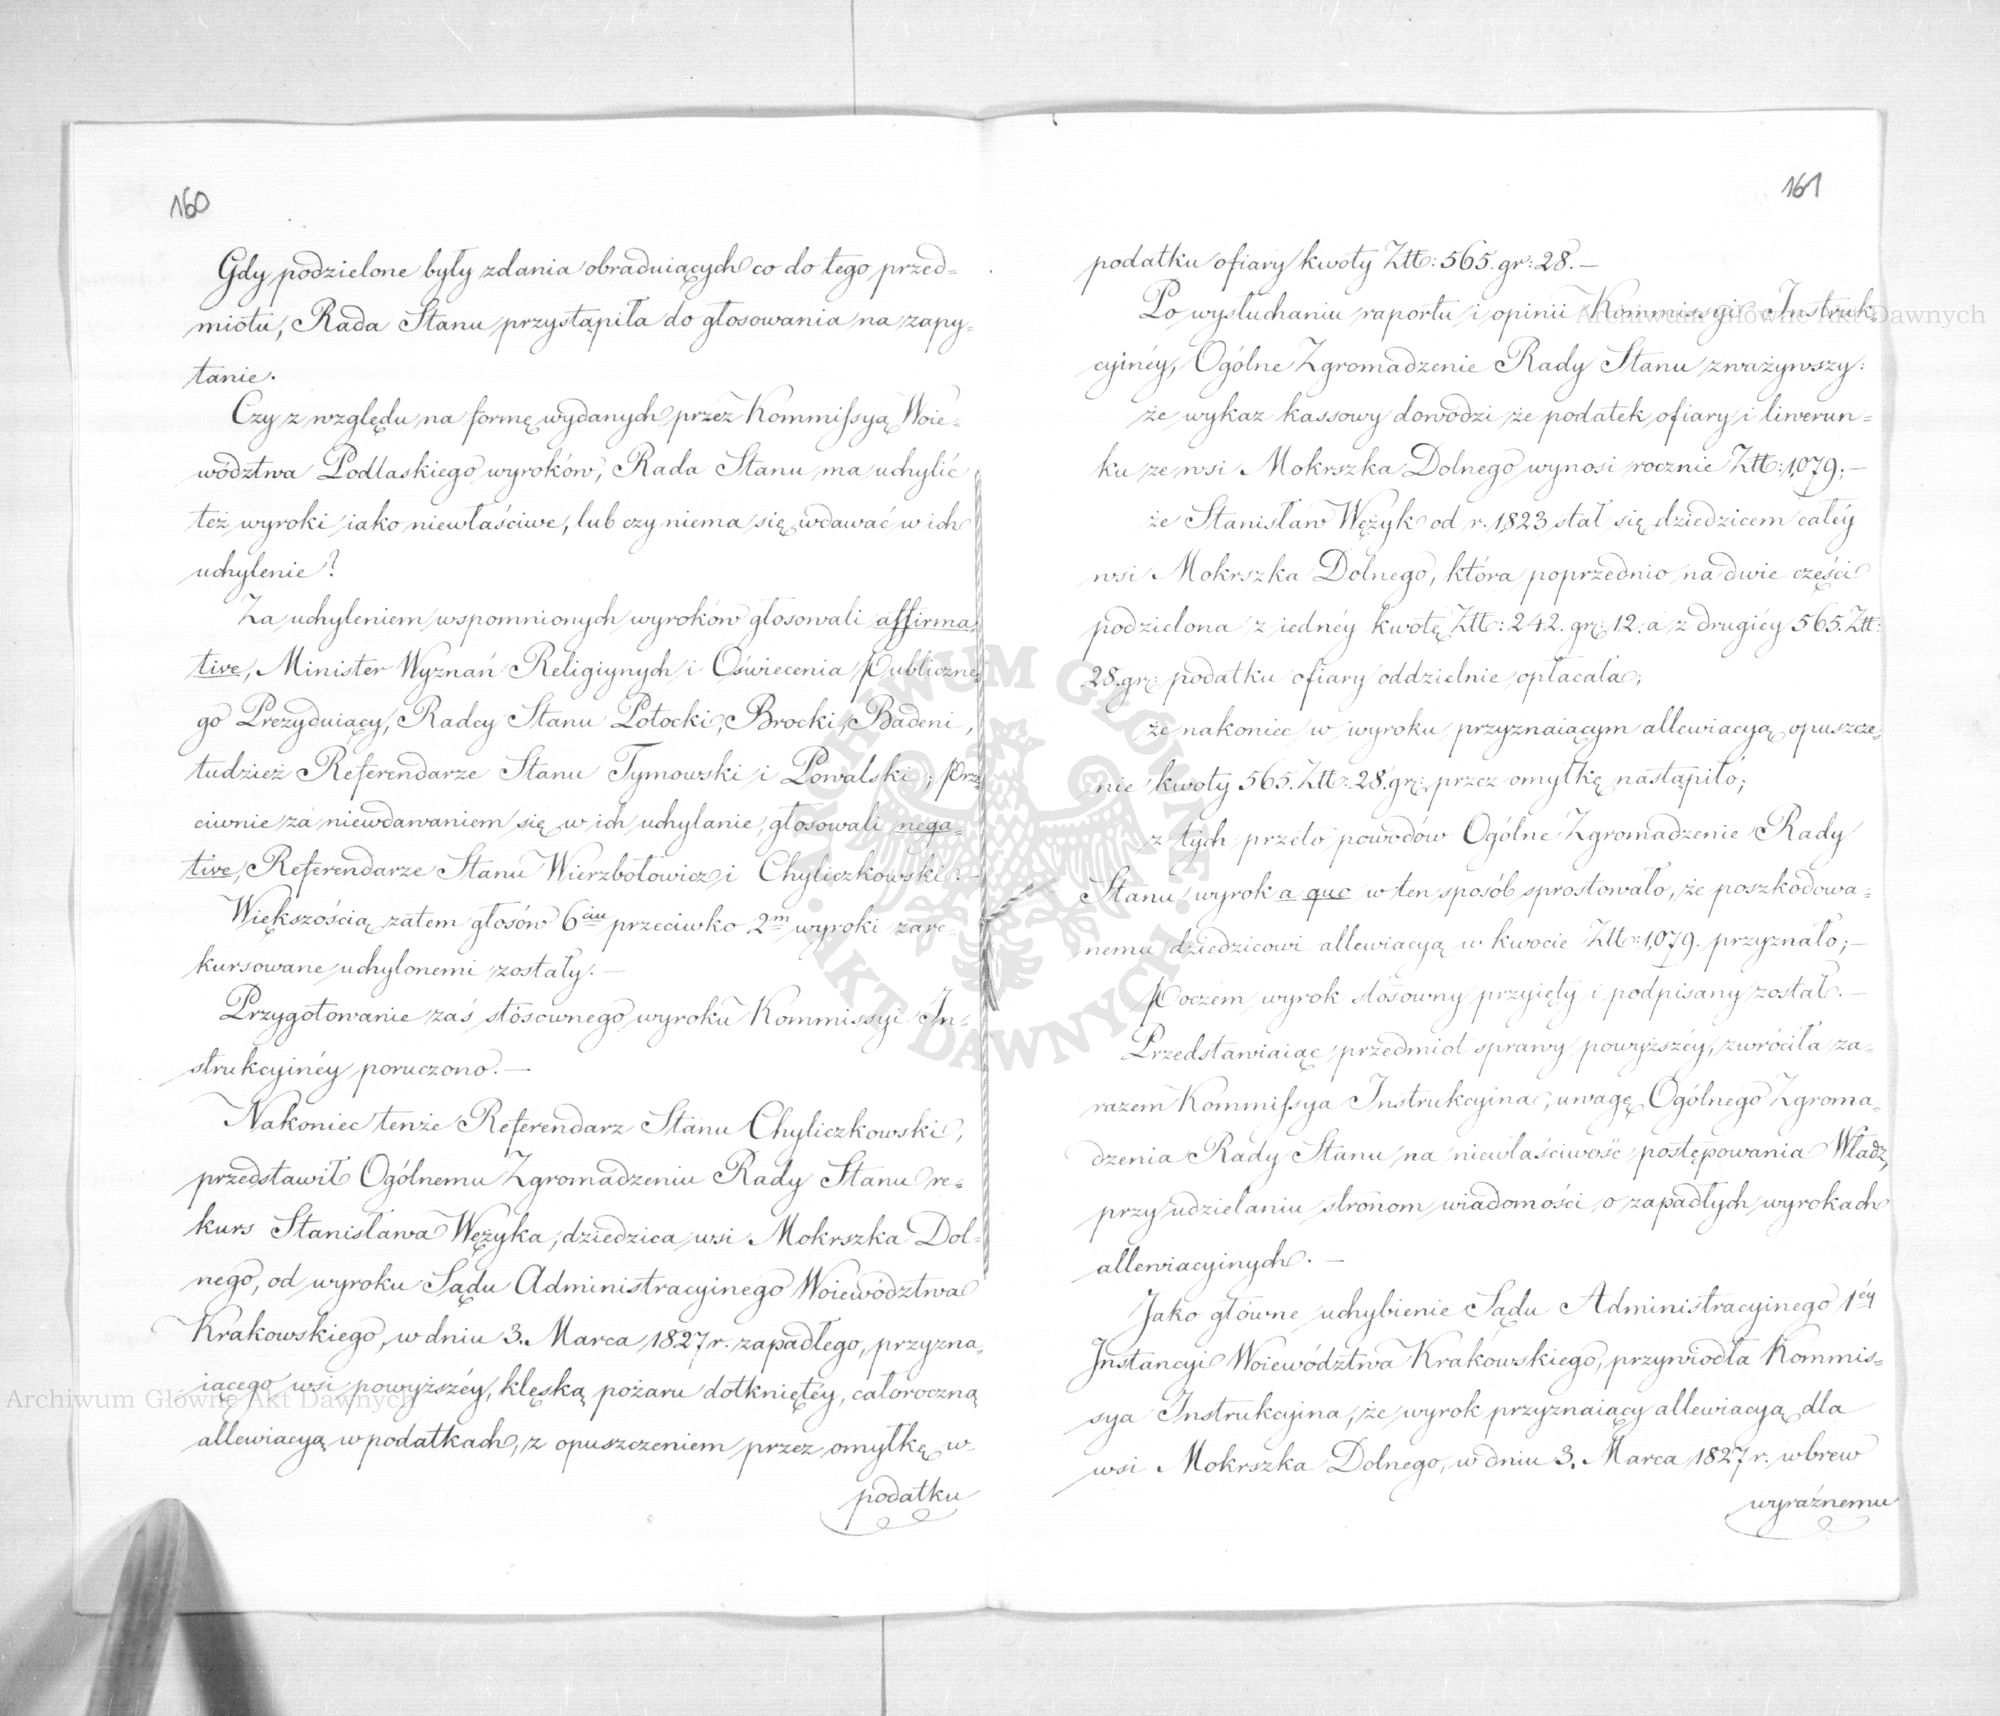 160
Gdy podzielone były zdania obraduiących co do tego przed=
miotu, Rada Stanu przystąpiła do głosowania na zapy=
tanie.
Czy z względu na formę wydanych przez Kommissyą Woie=
wództwa Podlaskiego wyroków, Rada Stanu ma uchylić
też wyroki iako niewłaściwe, lub czy niema się wdawać w ich
uchylenie?
Za uchyleniem wspomnionych wyroków głosowali affirma=
tive, Minister Wyznań Religiynych i Oświecenia Publiczne=
go Prezyduiący, Radcy Stanu Potocki, Brocki, Badeni,
tudzież Referendarze Stanu Tymowski i Powalski; prze=
ciwnie za niewdawaniem się w ich uchylanie, głosowali nega=
tive, Referendarze Stanu Wierzbołowicz i Chyliczkowski. —
Większością zatem głosów 6ciu przeciwko 2m wyroki zare=
kursowane uchylonemi zostały. —
Przygotowanie zaś stósownego wyroku Kommissyi In=
strukcyinéy poruczono. —
Nakoniec tenże Referendarz Stanu Chyliczkowski,
przedstawił Ogólnemu Zgromadzeniu Rady Stanu re=
kurs Stanisława Wężyka, dziedzica wsi Mokrszka Dol=
nego, od wyroku Sądu Administracyinego Woiewództwa
Krakowskiego, w dniu 3. Marca 1827 r. zapadłego, przyzna=
iącego wsi powyższéy, klęską pożaru dotkniętéy, całoroczną
allewiacyą w podatkach, z opuszczeniem przez omyłkę w
podatku
161
podatku ofiary kwoty Ztt: 565. gr: 28. —
Po wysłuchaniu raportu i opinii Kommissyi Instruk=
cyinéy, Ogólne Zgromadzenie Rady Stanu zważywszy:
że wykaz kassowy dowodzi że podatek ofiary i liwerun=
ku ze wsi Mokrszka Dolnego wynosi rocznie Ztt: 1,079; —
że Stanisław Wężyk od r. 1823 stał się dziedzicem całéy
wsi Mokrszka Dolnego, która poprzednio na dwie części
podzielona z iednéy kwotę Ztt: 242. gr: 12. a z drugiéy 565. Ztt:
28. gr: podatku ofiary oddzielnie opłacała;
że nakoniec w wyroku przyznaiącym allewiacyą opuszcze=
nie kwoty 565. Ztt: 28. gr: przez omyłkę nastąpiło;
z tych przeto powodów Ogólne Zgromadzenie Rady
Stanu wyrok a quo w ten sposób sprostowało, że poszkodowa=
nemu dziedzicowi allewiacyą w kwocie Ztt: 1,079. przyznało; —
poczém wyrok stósowny przyięty i podpisany został. —
Przedstawiaiąc przedmiot sprawy powyższéy, zwróciła za=
razem Kommissya Instrukcyina, uwagę Ogólnego Zgroma=
dzenia Rady Stanu na niewłaściwość postępowania Władz,
przy udzielaniu stronom wiadomości o zapadłych wyrokach
allewiacyinych. —
Jako główne uchybienie Sądu Administracyinego 1éy
Instancyi Woiewództwa Krakowskiego, przywiodła Kommis=
sya Instrukcyina, że wyrok przyznaiący allewiacyą dla
wsi Mokrszka Dolnego, w dniu 3. Marca 1827 r. wbrew
wyraźnemu
Archiwum Główne Akt Dawnych
Archiwum Główne Akt Dawnych
ARCHIWUM GŁÓWNE
AKT DAWNYCH